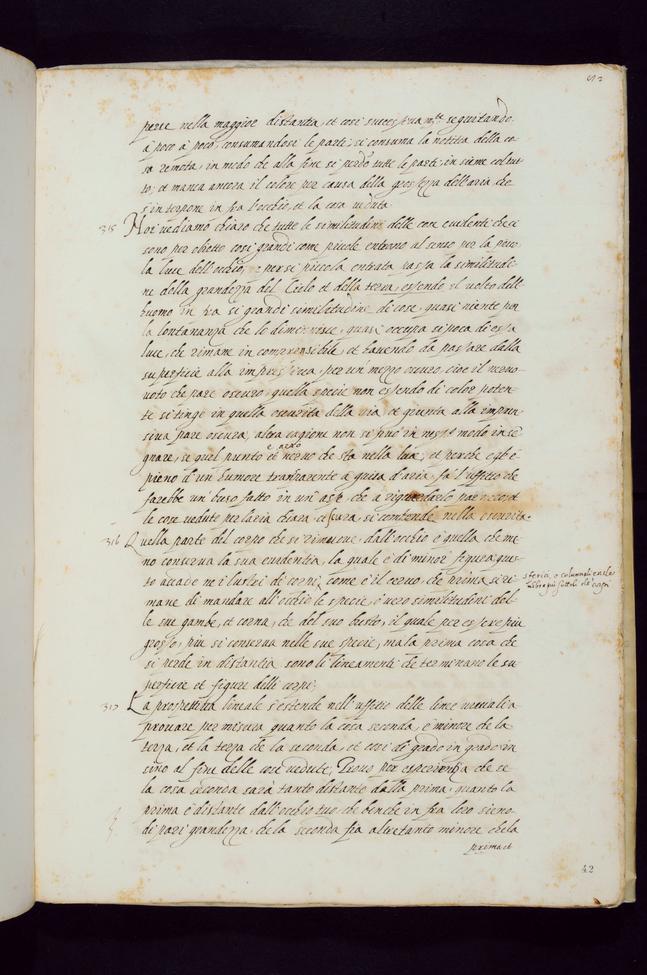 52
perse nella maggior distantia, et così successivam.te seguitando
à poco à poco, consumandosi le parte, si consuma la notitia della co
sa remota, in modo che alla fine si perdō tutte le parte, in sieme col tut
to, et manca ancora il colore per causa della grossezza dell'aria, che
s'interpone in fra l'occhio, et la cosa veduta
315 Noi vediamo chiaro che tutte le similitudini delle cose evidenti che ci
sono per obietto così grandi come picole entrono al senso per la picco
la luce dell'occhio, e per sì piccola entrata passa la similitudi
ne della grandezza del Cielo et della terra, essendo il volto dell'
huomo in fra sì grandi similitudini di cose, quasi niente per
la lontananza che lo diminuisce, quasi occupa sì poca di essa
luce, che rimane in comprensibile, et havendo da passare dalla
superficie alla impressiva, per un mezzo oscuro, cioè il nervo
voto che pare oscuro, quella specie non essendo di color poten
te si tinge in quella oscurità della via, et giunta alla impres
siva pare oscura, altra cagione non si può in ness.o modo in se
gnare, se quel punto è nero
nervo che sta nella luce, et perche egli è
pieno d'un humore trasparente à guisa d'aria, fà l'uffitio che
farebbe un buso fatto in un'asse, che à riguardarlo par nero, et
le cose vedute per l'aria chiara et scura, si confonde nella oscurità.
316 Quella parte del corpo che si rimuove dall'occhio è quella che me
no conserva la sua evidentia, la quale è di minor figura; ques
to accade ne i lustri di corpi
sferici, o colunnali e nelle
membra più sottili de' corpi
come è il cervo, che prima si ri
mane di mandare all'occhio le specie, ò vero similitudini del
le sue gambe, et corna, che del suo busto, il quale per essere più
grosso, piu si conserva nelle sue specie, ma la prima cosa che
si perde in distantia sono li lineamenti che terminano le su
perficie et figure delli corpi;
317 La prospettiva lineale s'estende nell'uffitio delle linee visuali à
provare per misura quanto la cosa seconda, è minore che la
terza, et la terza che la seconda, et così di grado in grado in
sino al fine delle cose vedute; Trovo per esperienza che se
la cosa seconda sarà tanto distante dalla prima, quanto la
prima è distante dall'occhio tuo, che benche in fra loro sieno
di pari grandezza, che la seconda fia altretanto minore che la
prima et
42